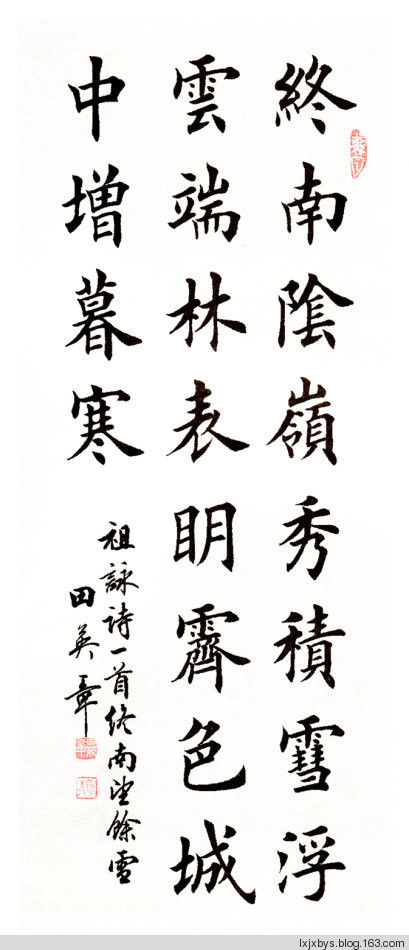 終南陰嶺秀積雪浮
雲端林表明霽色城
中增暮寒
祖詠诗一首终南望餘雪
田英章
lxjxbys.blog.163.com